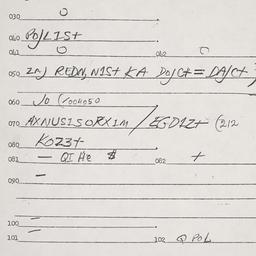 030 O
040 Po/LISt
041 O 042
050 REDN, NISt KA Do/Ct = DA/Ct
060 Jo (1004050
070 AXNIUSISORXIM / EGDIZt (212
080 KOZ3t
081 — QI He $ 082 +
090 —
100 —
101 — 102 Q POL